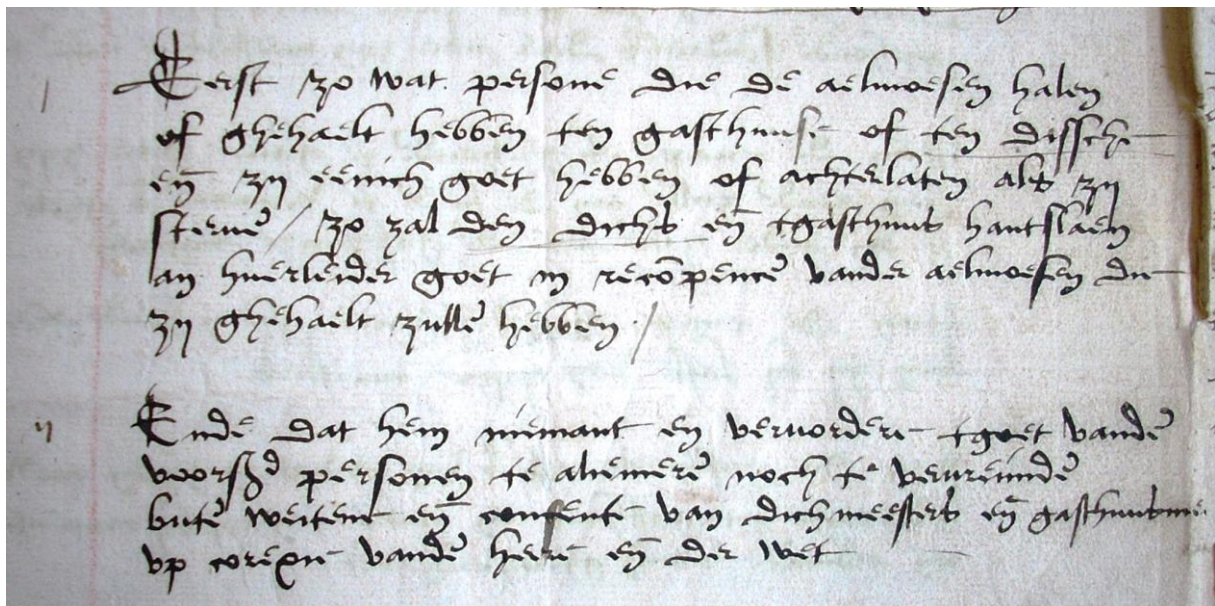 Eerst zo wat persone die de aelmoesen halen
of ghehaelt hebben ten gasthuuse of ten dissche
eñ zy eenich goet hebben of achterlaten als zy
steruē / zo zal den dichs eñ tgasthuus hantslaen
an huerleider goet in recōpencē vander aelmoesen die
zy ghehaelt zullē hebben /
ij Ende dat hem niemant en veruordere tgoet vandē
voors personen te alienerē noch te vervreindē
butē weitene eñ consente van dichmeesters eñ gasthuusmee
up corexie vandē heere eñ der wet